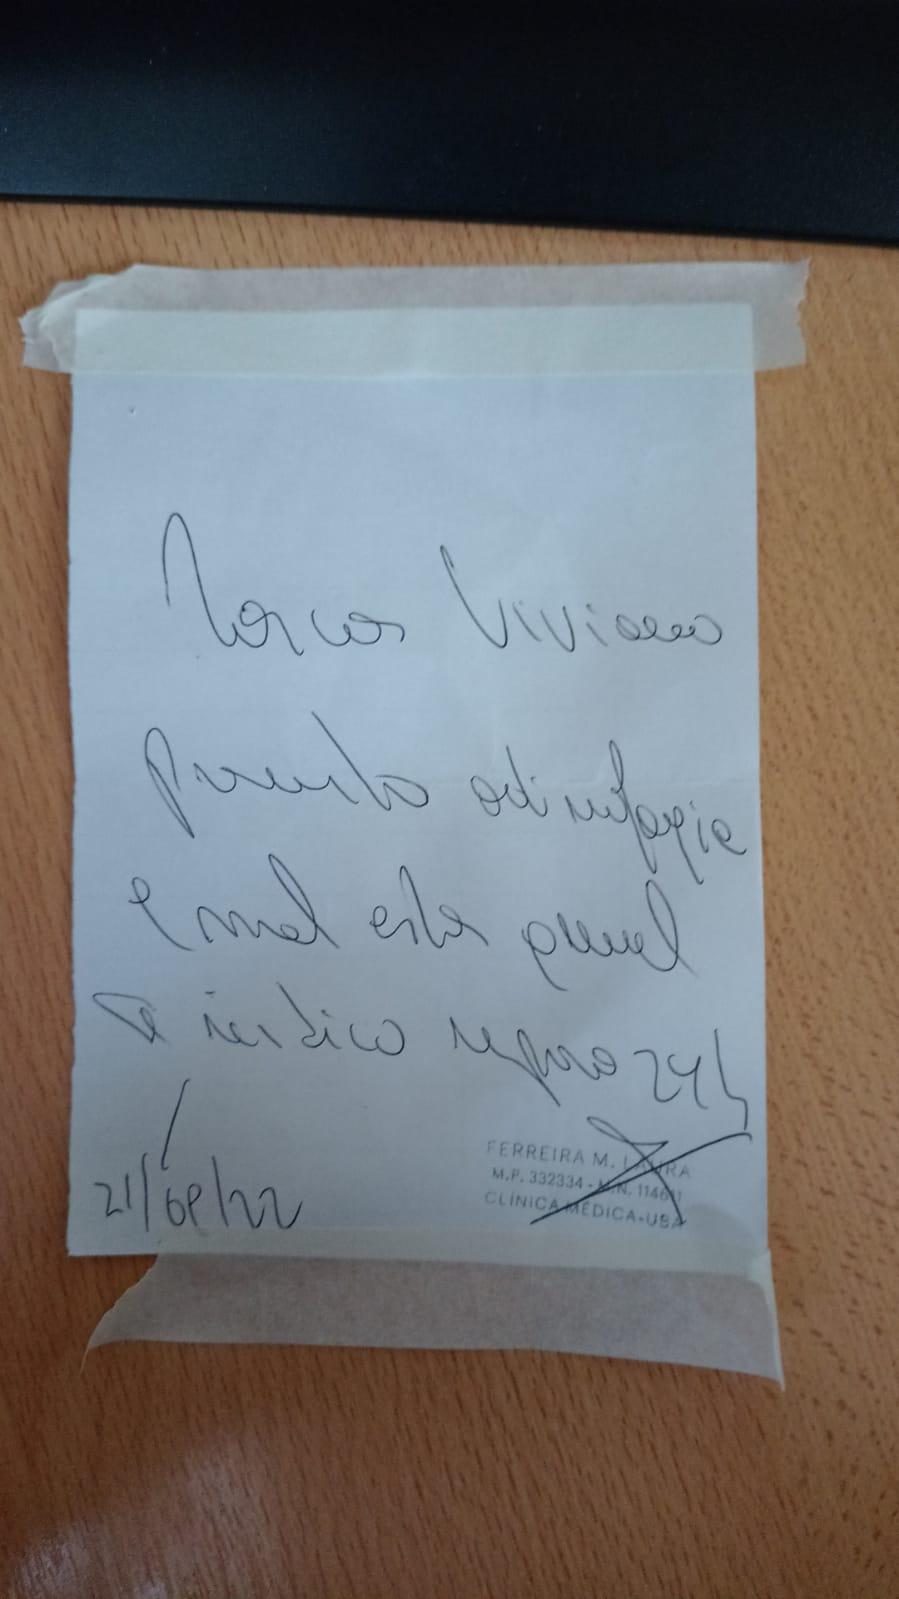 Marcos Viviano
presenta odinofagia
y mal estar general
se indico reposo 24 h
21/09/22
FERREIRA M. LAURA
M.P. 332334 - M.N. 114611
CLÍNICA MÉDICA-UBA